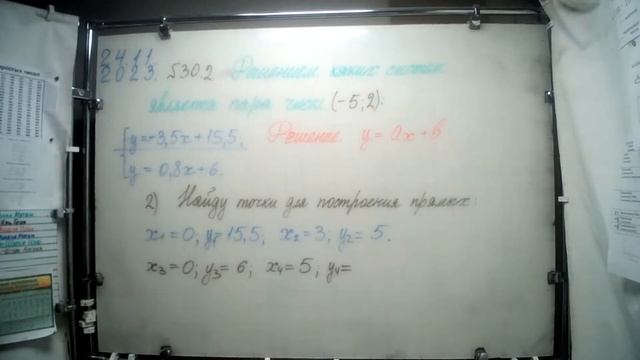 24.11
2023. §30.2 Решением каких систем
является пара чисел (-5;2):
{y=-3,5x+15,5; Решение. y = ax+b
{y = 0,8x+6.
2) Найду точки для построения прямых:
x₁=0; y₁=15,5; x₂=3; y₂=5.
x₃=0; y₃=6; x₄=5; y₄=